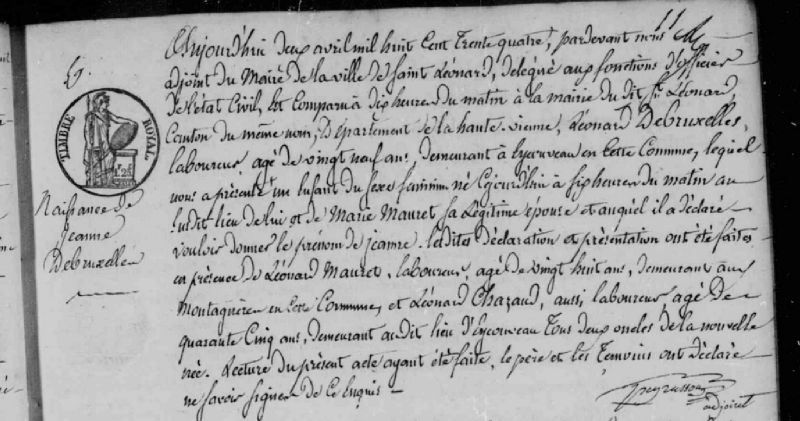 Aujourd'hui deux avril mil huit cent trente quatre, pardevant nous
adjoint du Maire de la ville de saint Léonard, délégué aux fonctions d'officier
de l'état Civil, Est Comparu à dix heures du matin à la mairie du dit St. Léonard,
Canton du même nom, Département de la haute vienne, Léonard Debruxelles,
laboureur, agé de vingt neuf ans, demeurant à en Cette Commune, lequel
nous a présenté un Enfant du sexe féminin né Ejourd'hui à six heures du matin au
susdit lieu de lui et de Marie Mauret sa Légitime épouse et auquel il a déclaré
vouloir donner le prénom de jeanne. lesdites déclaration et présentation ont été faites
en présence de Léonard Mauret, laboureur, agé de vingt huit ans, demeurant aux
en Cette Commune, et Léonard Chazaud, aussi laboureur agé de
quarante Cinq ans, demeurant audit lieu Tous deux oncles de la nouvelle
née. Lecture du présent acte ayant été faite, le père et les Temoins ont déclaré
ne savoir signer de Ce Enquis
adjoint
TIMBRE ROYAL
Naissance de
jeanne
Debruxelles